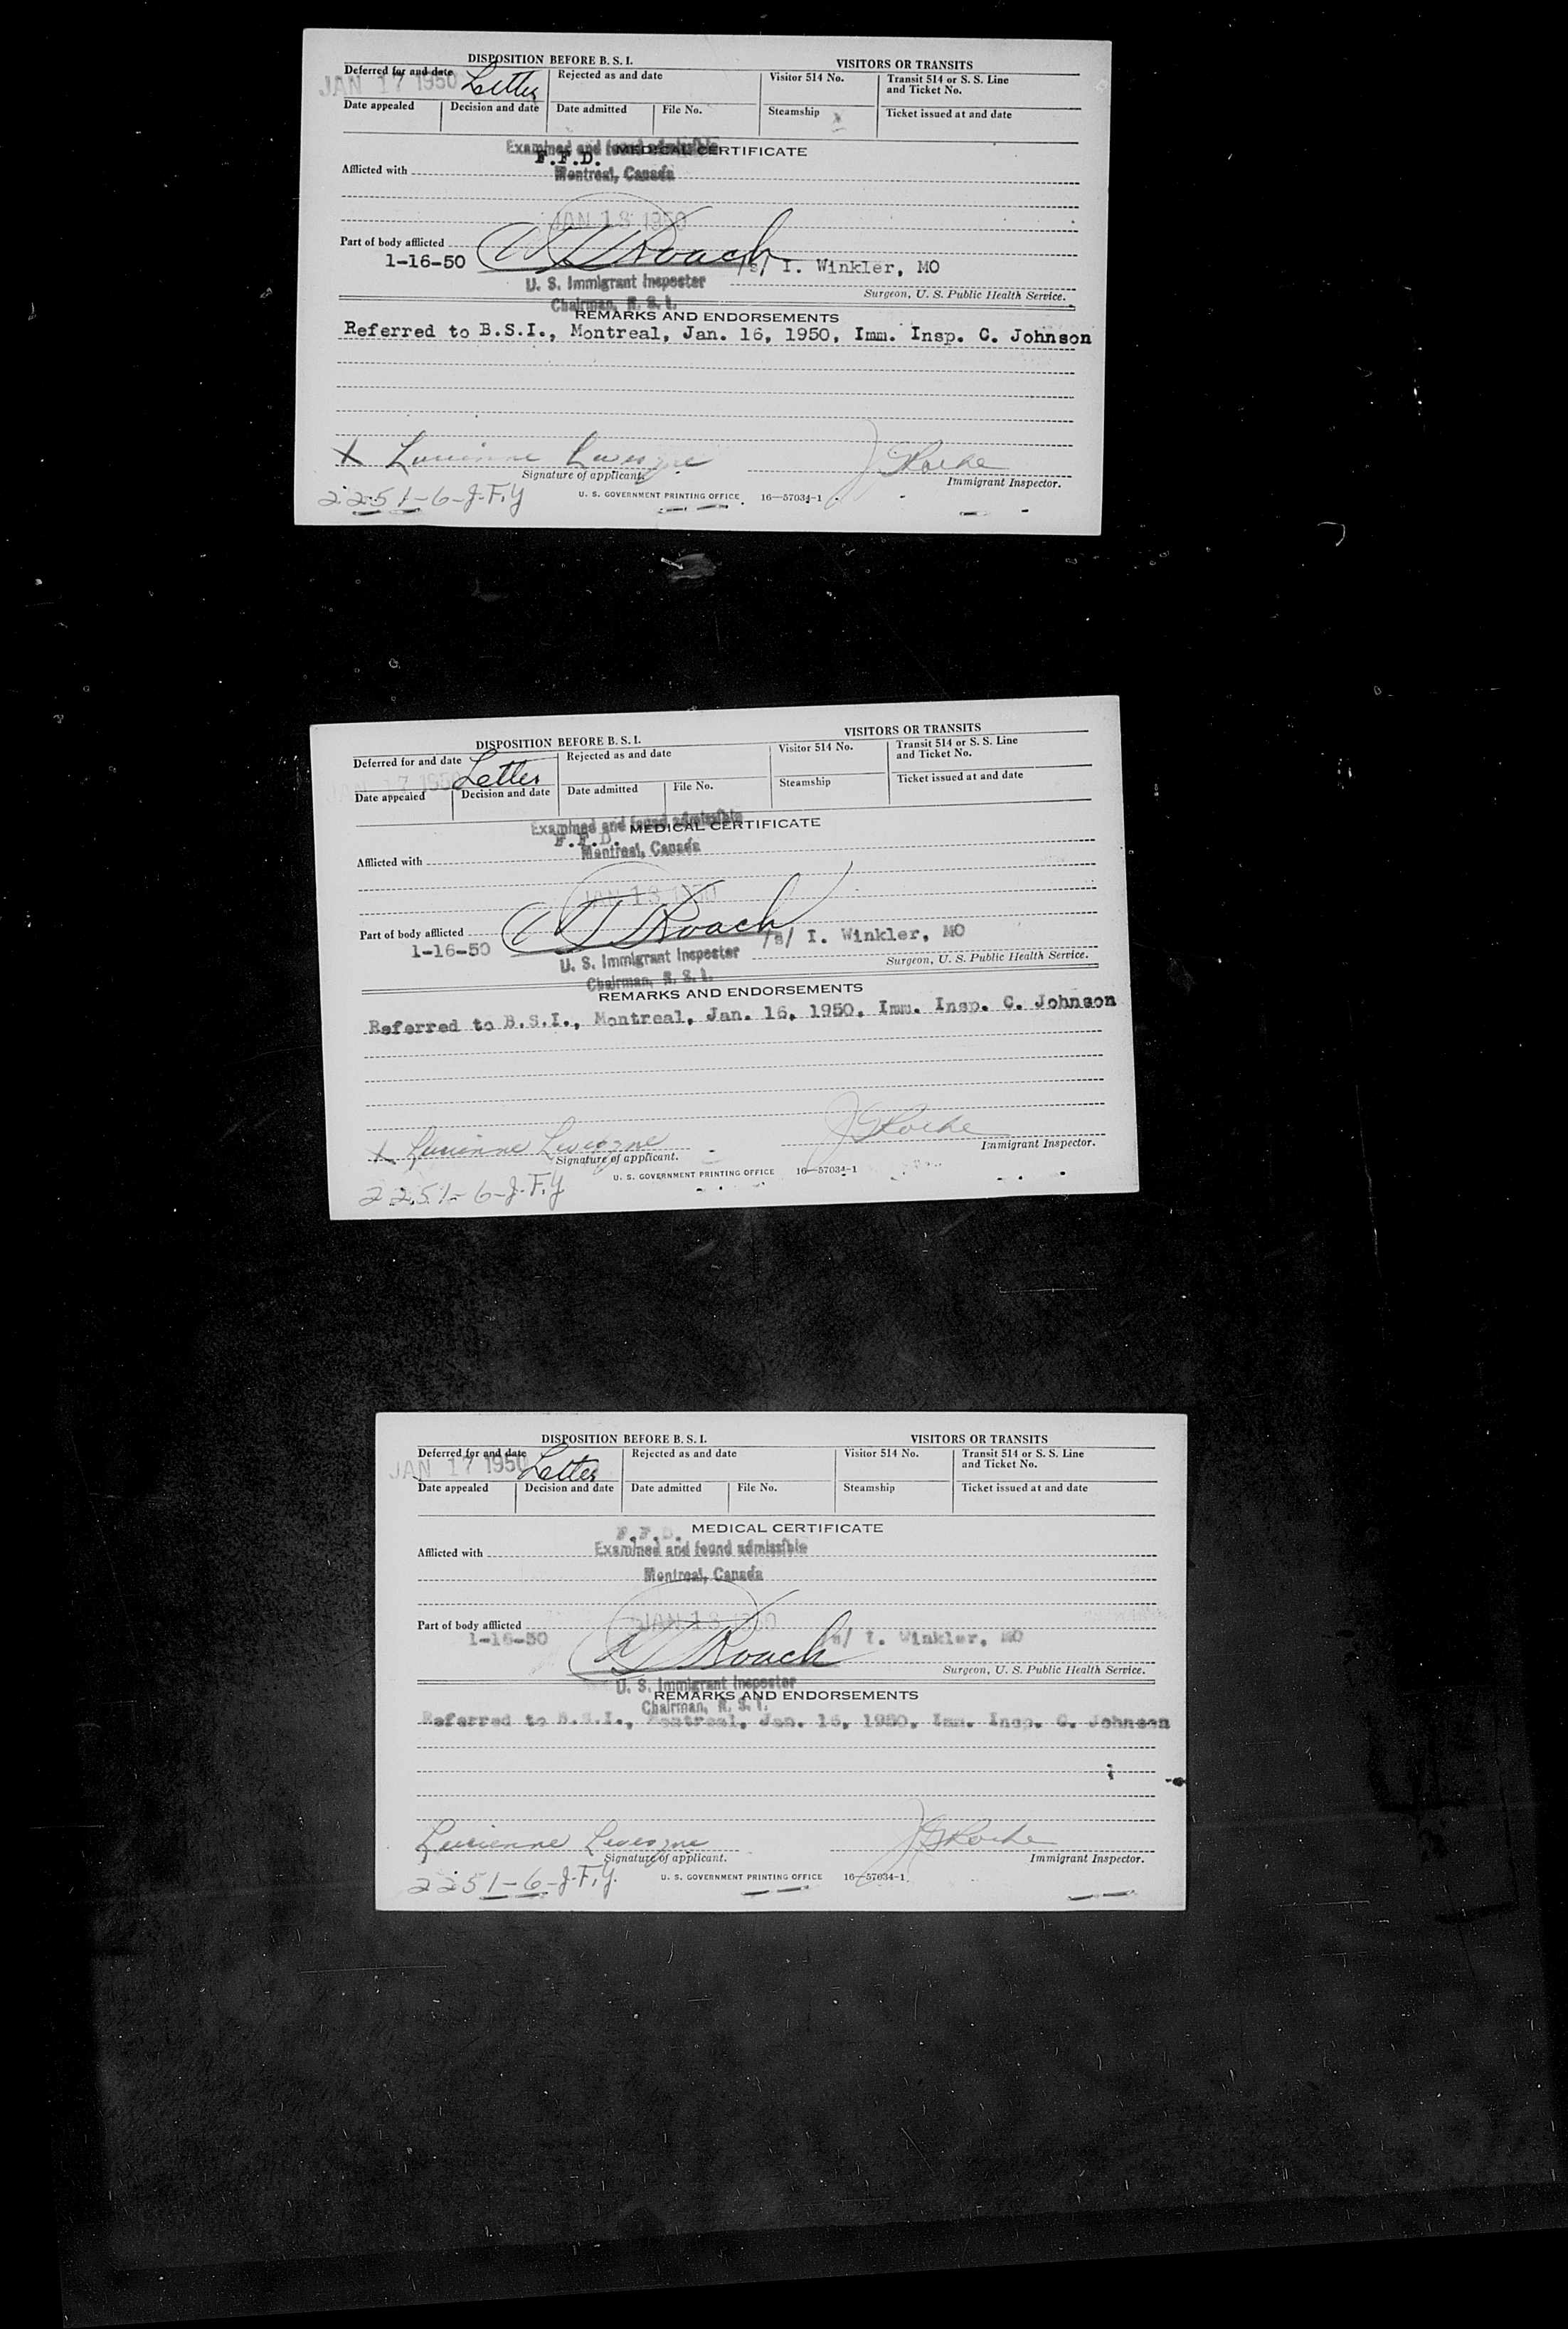 DISPOSITION BEFORE B. S. I.
VISITORS OR TRANSITS
Deferred for and date
JAN 17 1950
Letter
Rejected as and date
Visitor 514 No.
Transit 514 or S. S. Line and Ticket No.
Date appealed
Decision and date
Date admitted
File No.
Steamship
Ticket issued at and date
Examined and found admissible
F.F.D. MEDICAL CERTIFICATE
Afflicted with
Montreal, Canada
JAN 18 1950
Part of body afflicted
Roach
1-16-50
/s/ I. Winkler, MO
U. S. Immigrant Inspector
Surgeon, U. S. Public Health Service.
Chairman, B. S. I.
REMARKS AND ENDORSEMENTS
Referred to B.S.I., Montreal, Jan. 16, 1950, Imm. Insp. C. Johnson
X Lucienne
Signature of applicant.
Immigrant Inspector.
2251-6-J.F.Y
U. S. GOVERNMENT PRINTING OFFICE 16—57034-1
DISPOSITION BEFORE B. S. I.
VISITORS OR TRANSITS
Deferred for and date
17 1950
Letter
Rejected as and date
Visitor 514 No.
Transit 514 or S. S. Line and Ticket No.
Date appealed
Decision and date
Date admitted
File No.
Steamship
Ticket issued at and date
Examined and found admissible
F.F.D. MEDICAL CERTIFICATE
Afflicted with
Montreal, Canada
JAN 18 1950
Part of body afflicted
Roach
1-16-50
/s/ I. Winkler, MO
U. S. Immigrant Inspector
Surgeon, U. S. Public Health Service.
Chairman, B. S. I.
REMARKS AND ENDORSEMENTS
Referred to B.S.I., Montreal, Jan. 16, 1950, Imm. Insp. C. Johnson
X Lucienne
Signature of applicant.
Immigrant Inspector.
2251-6-J.F.Y
U. S. GOVERNMENT PRINTING OFFICE 16—57034-1
DISPOSITION BEFORE B. S. I.
VISITORS OR TRANSITS
Deferred for and date
JAN 17 1950
Letter
Rejected as and date
Visitor 514 No.
Transit 514 or S. S. Line and Ticket No.
Date appealed
Decision and date
Date admitted
File No.
Steamship
Ticket issued at and date
F.F.D. MEDICAL CERTIFICATE
Afflicted with
Examined and found admissible
Montreal, Canada
JAN 18 1950
Part of body afflicted
1-16-50
Roach
/s/ I. Winkler, MO
Surgeon, U. S. Public Health Service.
U. S. Immigrant Inspector
REMARKS AND ENDORSEMENTS
Chairman, B. S. I.
Referred to B.S.I., Montreal, Jan. 16, 1950, Imm. Insp. C. Johnson
Lucienne
Signature of applicant.
Immigrant Inspector.
2251-6-J.F.Y.
U. S. GOVERNMENT PRINTING OFFICE 16—57034-1